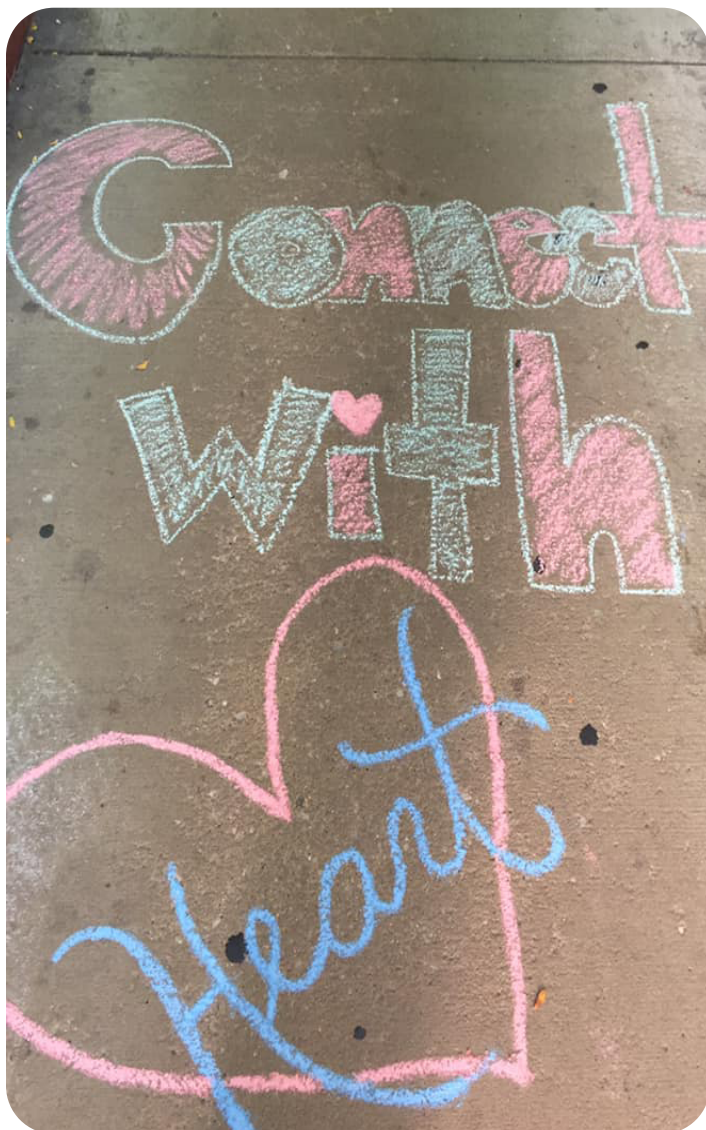 Connect
with
Heart